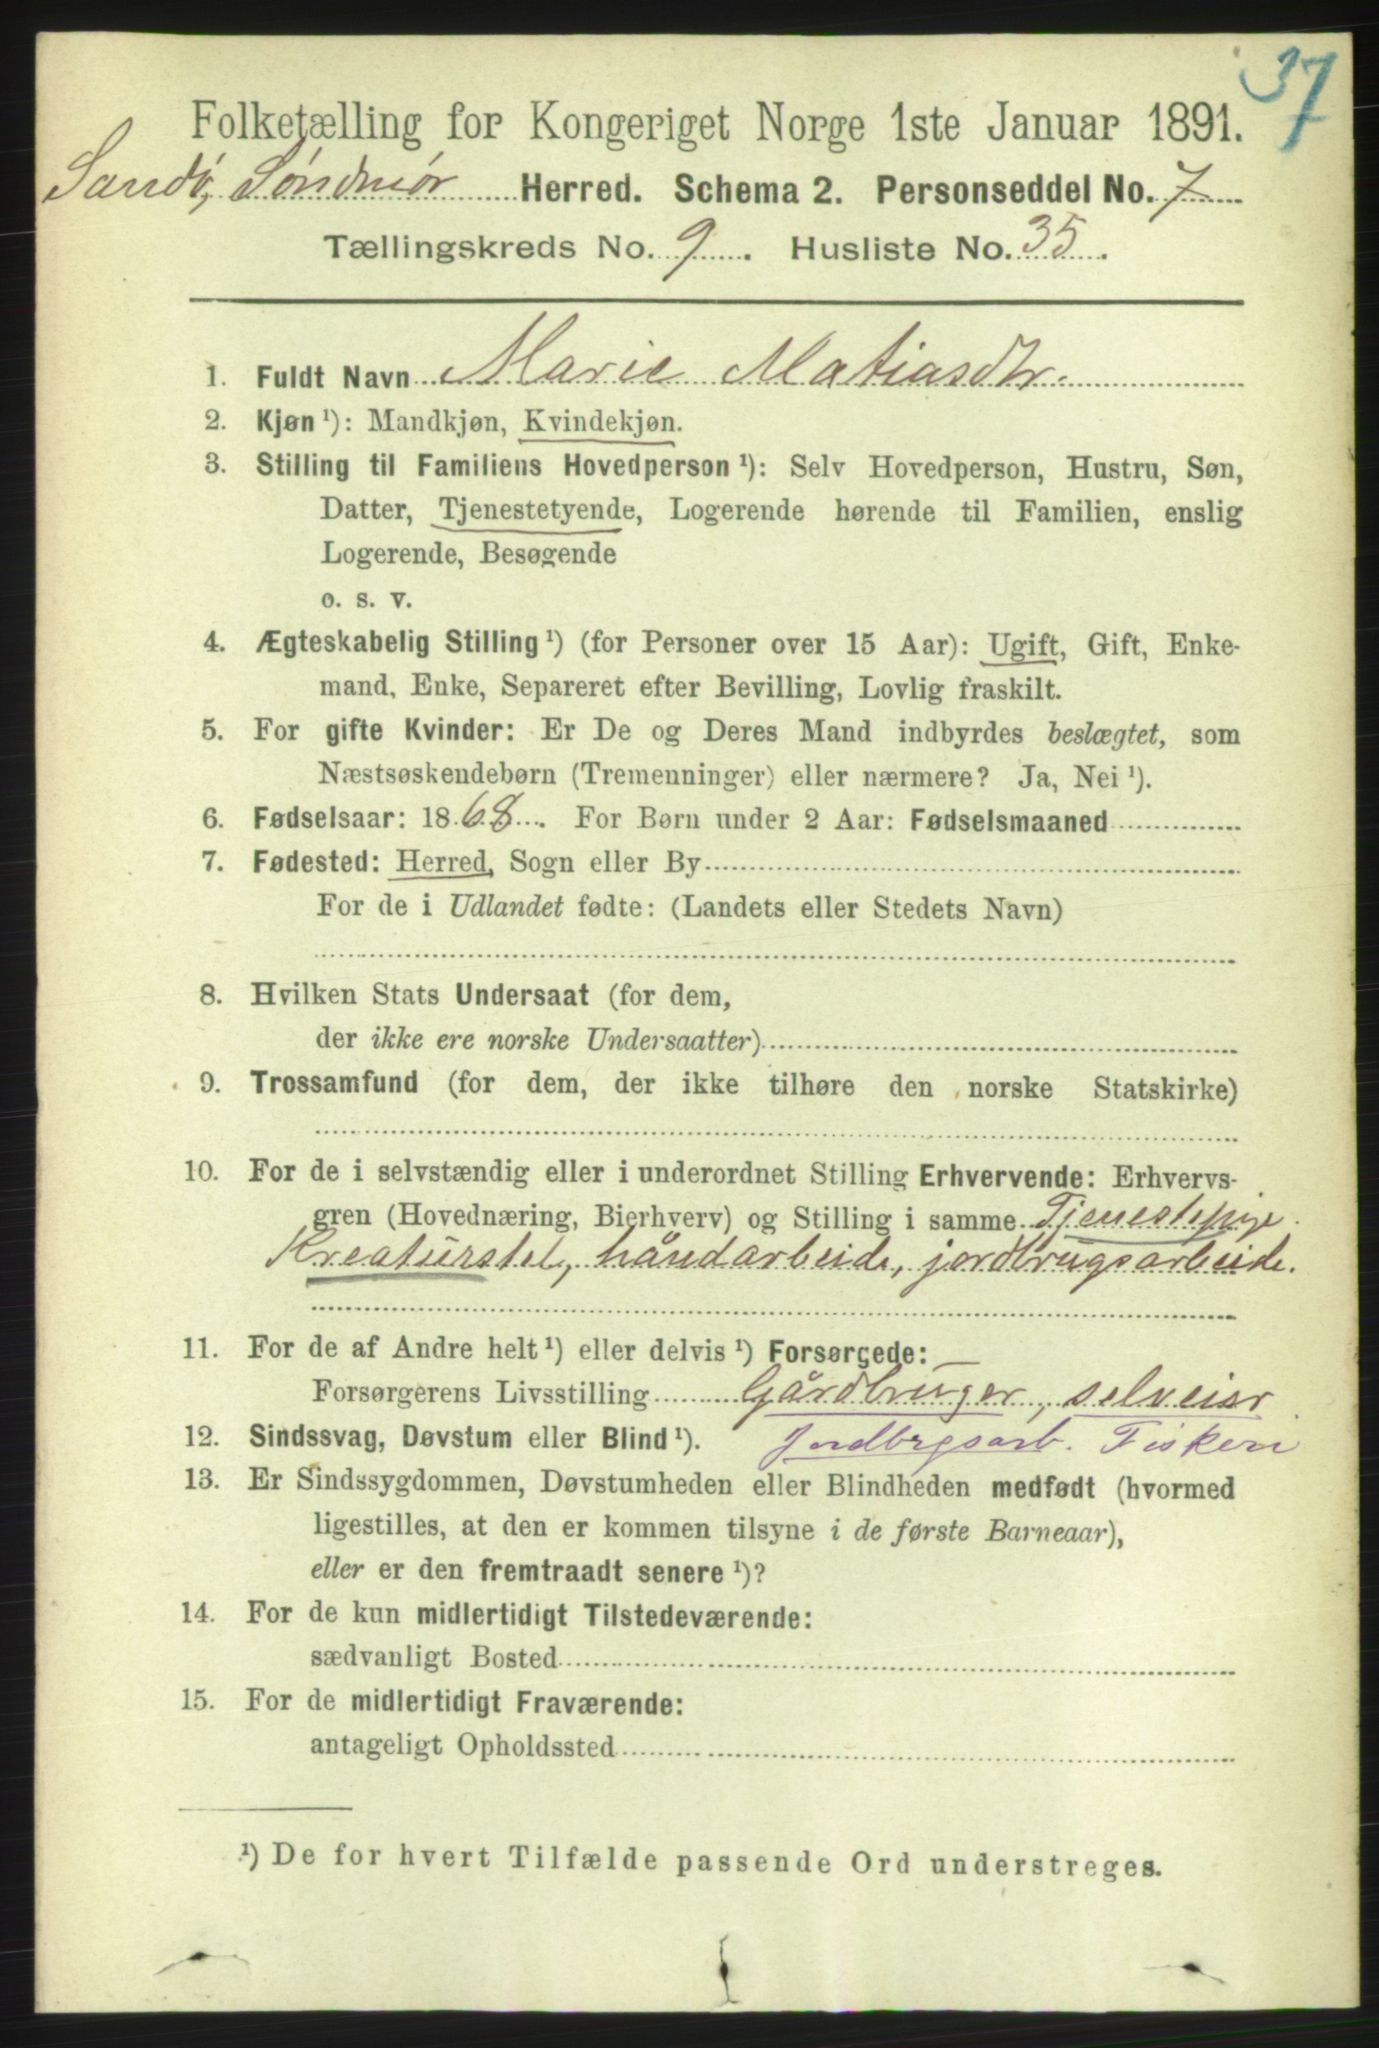 37
Folketælling for Kongeriget Norge 1ste Januar 1891.
Sandö, Söndmör Herred. Schema 2. Personseddel No. 7
Tællingskreds No. 9. Husliste No. 35.
1. Fuldt Navn Marie Matiasdtr.
2. Kjøn ¹): Mandkjøn, Kvindekjøn.
3. Stilling til Familiens Hovedperson ¹): Selv Hovedperson, Hustru, Søn,
Datter, Tjenestetyende, Logerende hørende til Familien, enslig
Logerende, Besøgende
o. s. v.
4. Ægteskabelig Stilling ¹) (for Personer over 15 Aar): Ugift, Gift, Enke-
mand, Enke, Separeret efter Bevilling, Lovlig fraskilt.
5. For gifte Kvinder: Er De og Deres Mand indbyrdes beslægtet, som
Næstsøskendebørn (Tremenninger) eller nærmere? Ja, Nei ¹).
6. Fødselsaar: 1868. For Børn under 2 Aar: Fødselsmaaned
7. Fødested: Herred, Sogn eller By
For de i Udlandet fødte: (Landets eller Stedets Navn)
8. Hvilken Stats Undersaat (for dem,
der ikke ere norske Undersaatter)
9. Trossamfund (for dem, der ikke tilhøre den norske Statskirke)
10. For de i selvstændig eller i underordnet Stilling Erhvervende: Erhvervs-
gren (Hovednæring, Bierhverv) og Stilling i samme Tjenestepige.
Kreaturstel, håndarbeide, jordbrugsarbeide.
11. For de af Andre helt ¹) eller delvis ¹) Forsørgede:
Forsørgerens Livsstilling Gårdbruger, selveier
12. Sindssvag, Døvstum eller Blind ¹). Jordbrgsarb. Fiskeri
13. Er Sindssygdommen, Døvstumheden eller Blindheden medfødt (hvormed
ligestilles, at den er kommen tilsyne i de første Barneaar),
eller er den fremtraadt senere ¹)?
14. For de kun midlertidigt Tilstedeværende:
sædvanligt Bosted
15. For de midlertidigt Fraværende:
antageligt Opholdssted
¹) De for hvert Tilfælde passende Ord understreges.